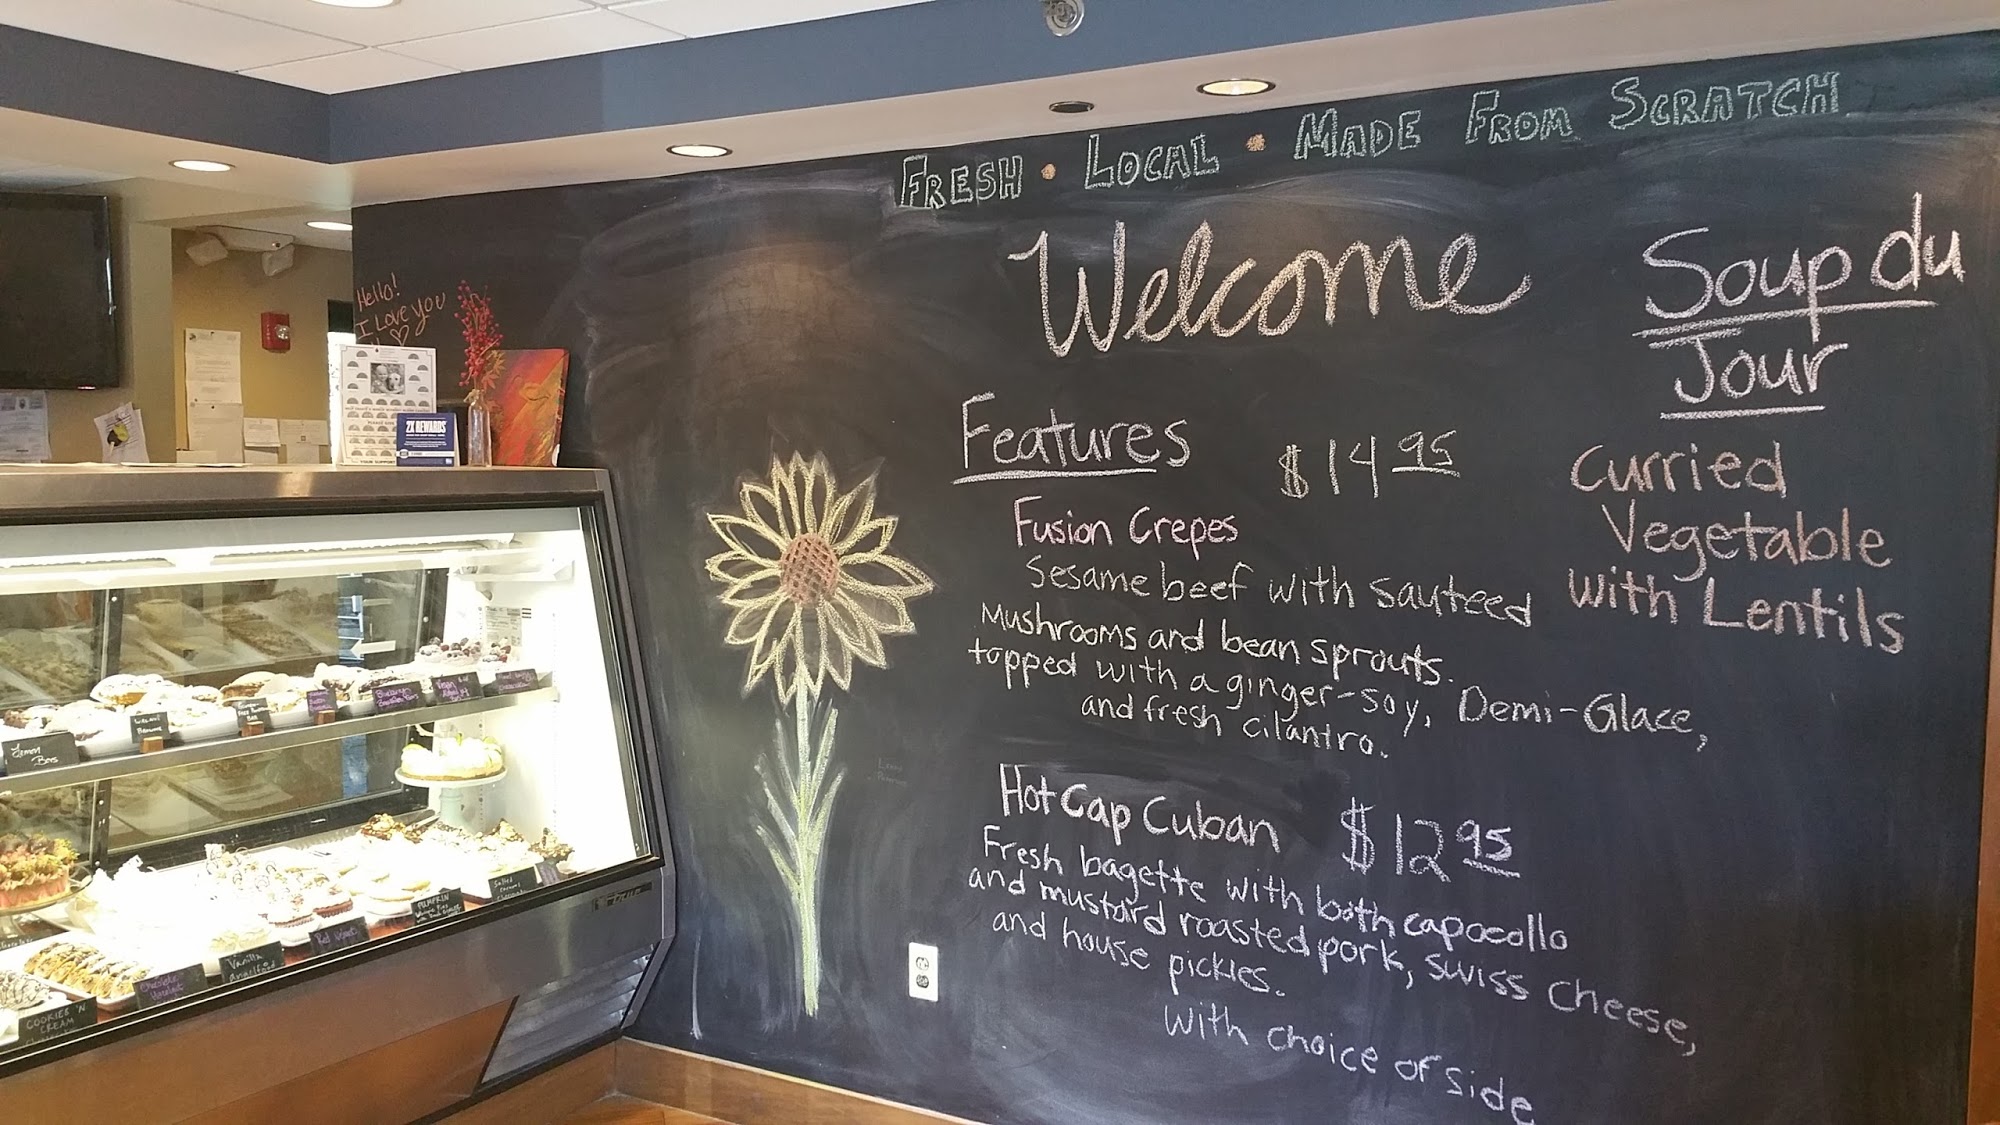 Fresh • Local • Made From Scratch
Welcome
Soup du
Jour
Curried
Vegetable
with Lentils
Features
$14 95
Fusion Crepes
Sesame beef with sauteed
Mushrooms and bean sprouts.
topped with a ginger-soy, Demi-Glace,
and fresh cilantro.
Hot Cap Cuban $12 95
Fresh bagette with both capocollo
and mustard roasted pork, swiss cheese,
and house pickles.
with choice of side
Hello!
I Love You
2X REWARDS
YOUR SUPPORT
Lemon
Bars
Walnut
PUMPKIN
Salted
Caramel
Red Velvet
Vanilla
Chocolate
Hazelnut
COOKIES 'N
CREAM